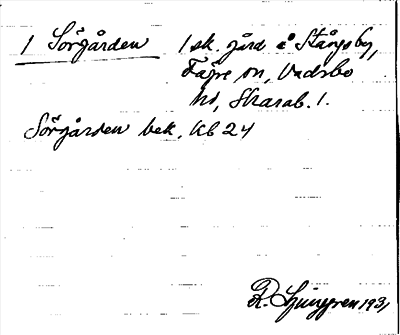 1 Sörgården 1 sk. gård å Stångsby,
Fägre sn, Vadsbo
hd, Skarab. l.
Sörgården bek. Kb 24
R. Ljunggren 1931